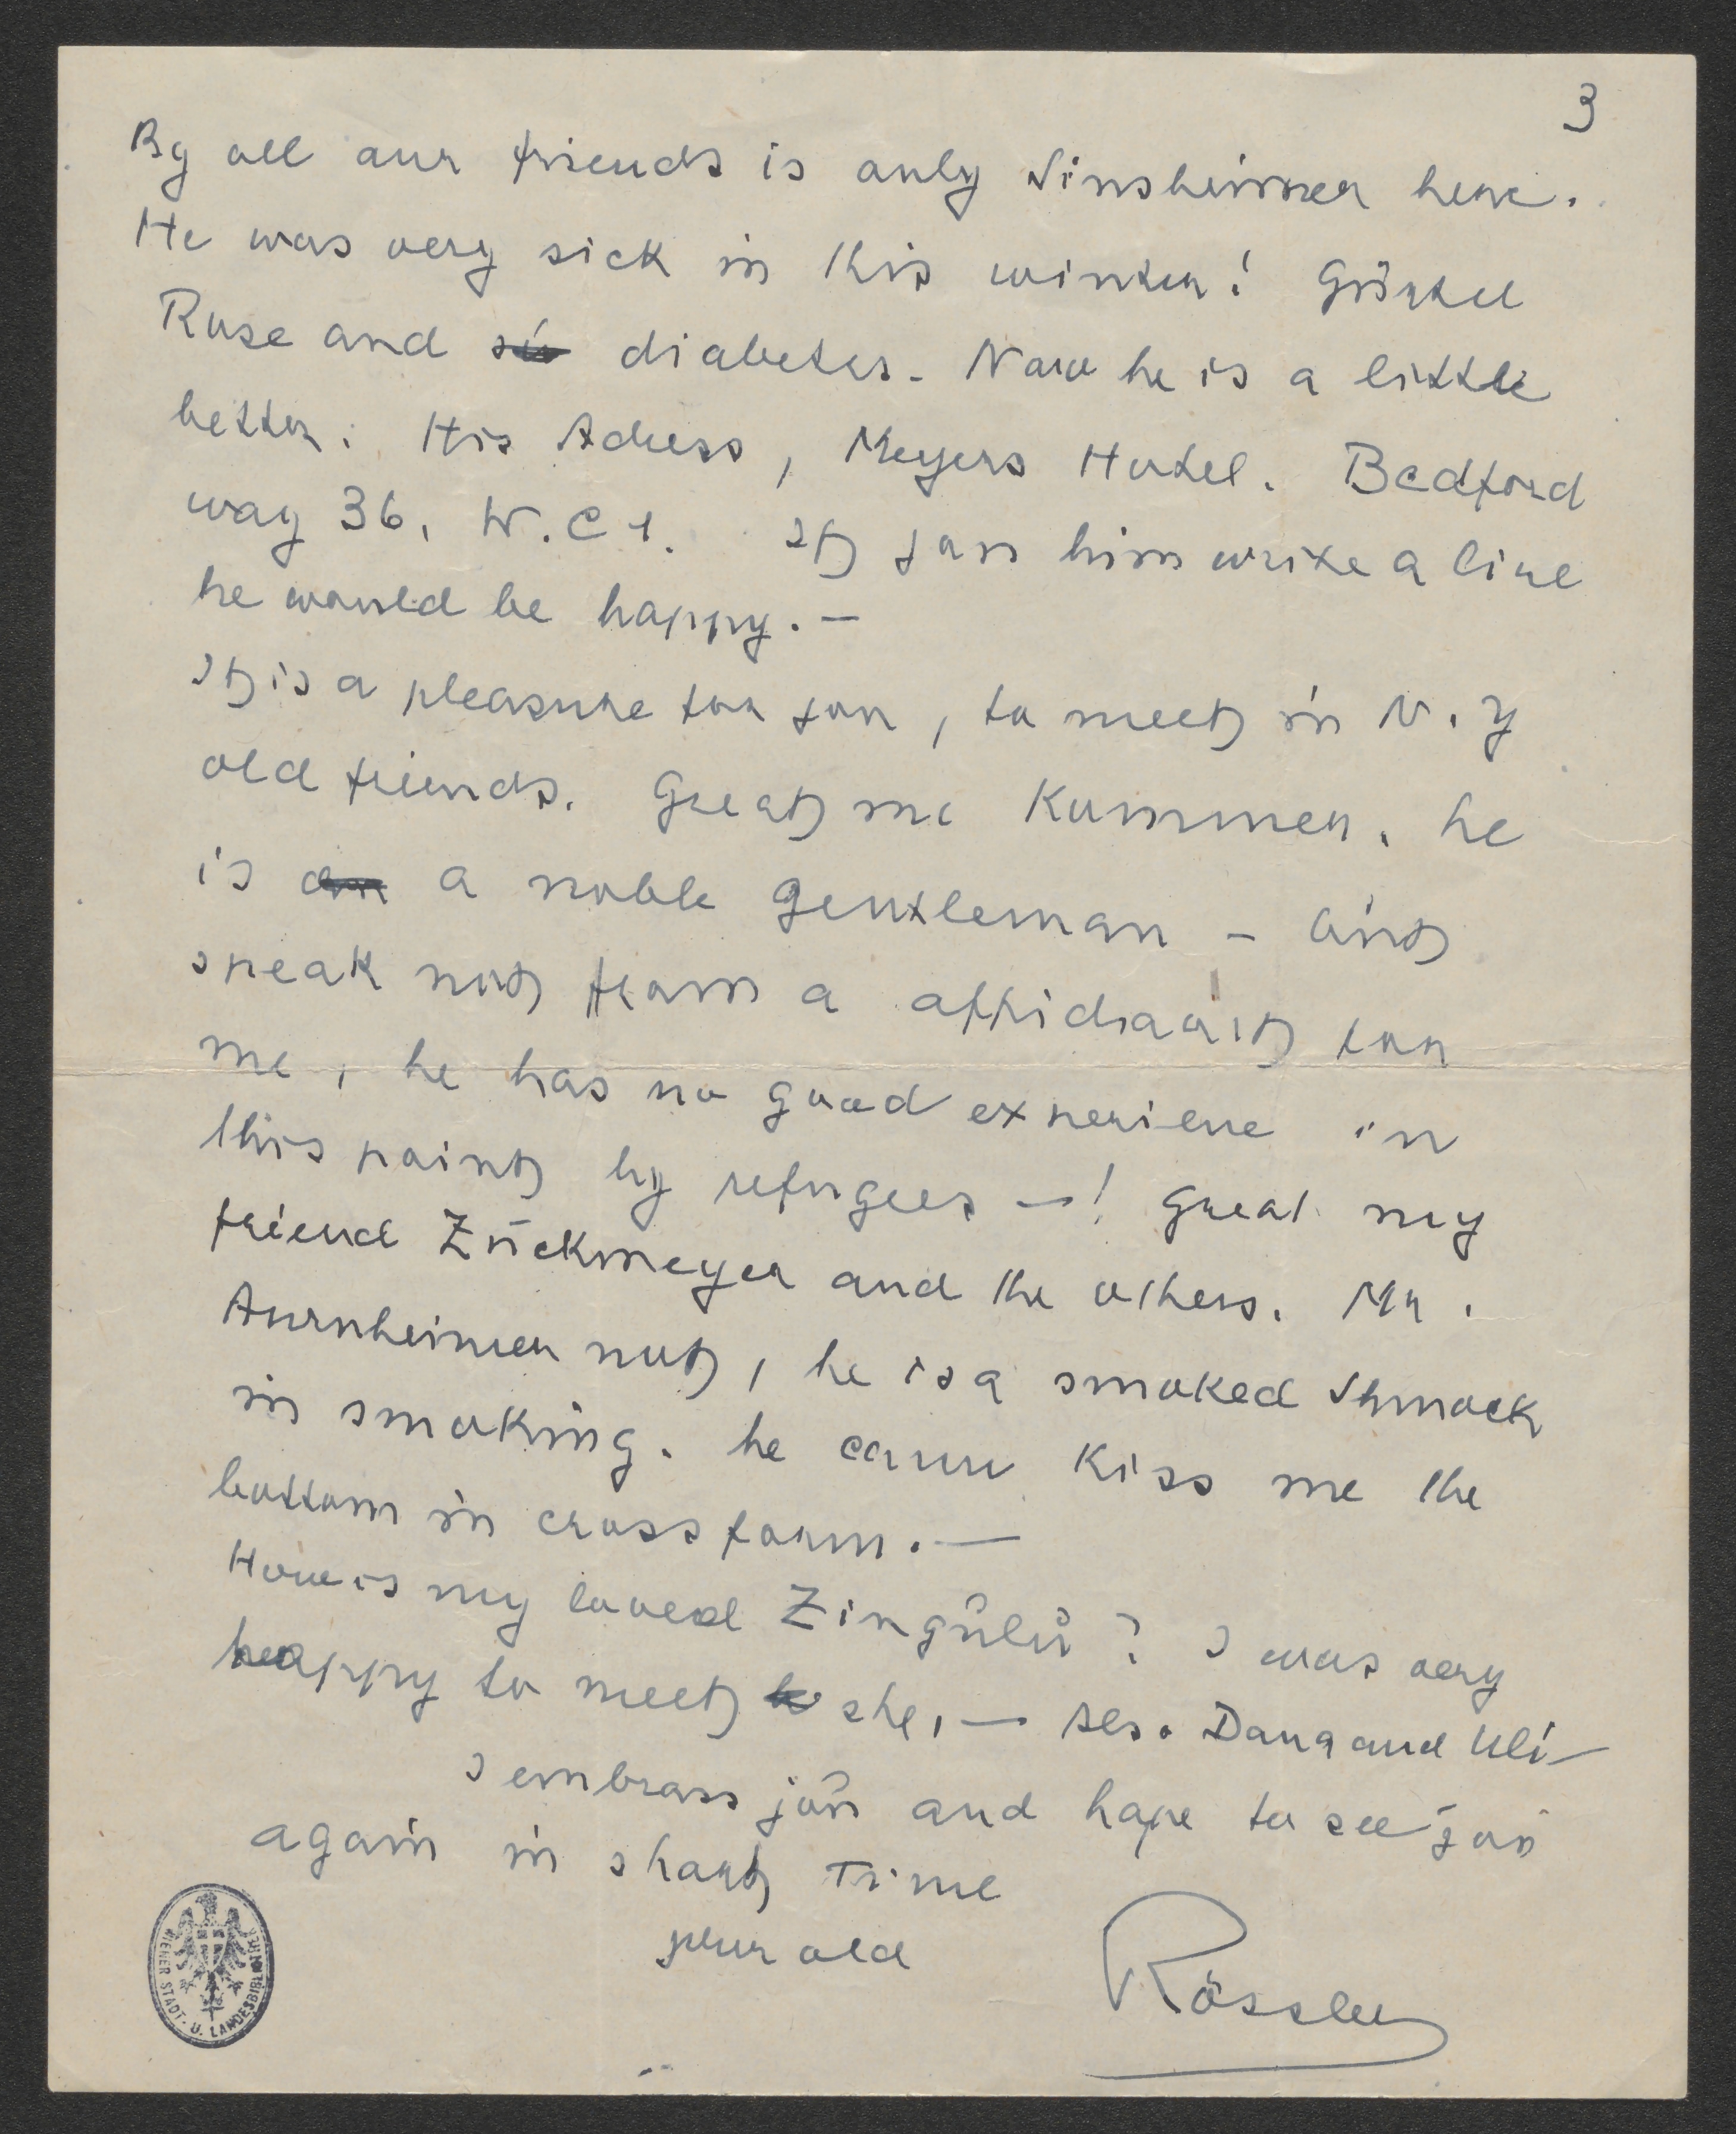 3
By all our friends is only Sinsheimer here.
He was very sick in this winter! Gürtel
Rose and diabetes. Now he is a little
better. His Adress, Meyers Hotel. Bedford
way 36, W.C1. If jou him write a line
he would be happy. —
It is a pleasure for jou, to meet in N.Y
old friends. Great me Kommer. he
is a noble gentleman –
speak not from a affidavit for
me, he has no good experiene in
this point by refugees —! Great my
friend Zückmeyer and the others. Mr.
Aurnheimer not, he is a smoked Shmock
in smoking. he cann kiss me the
bottom in crossform. —
How is my loved Zingülü? I was very
happy to meet she, — Dana and Uli—
I embrass joù and hope to see joù
again in short Time
your old
Rössler
WIENER STADT- U. LANDESBIBLIOTHEK